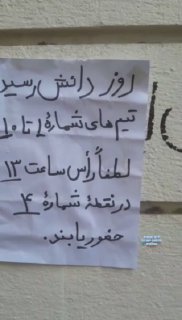 روز دانش رسید
تیم های شمارهٔ ۱ تا ۱۰
لطفاً رأس ساعت ۱۳
در نقطهٔ شمارهٔ ۴
حضور یابند.